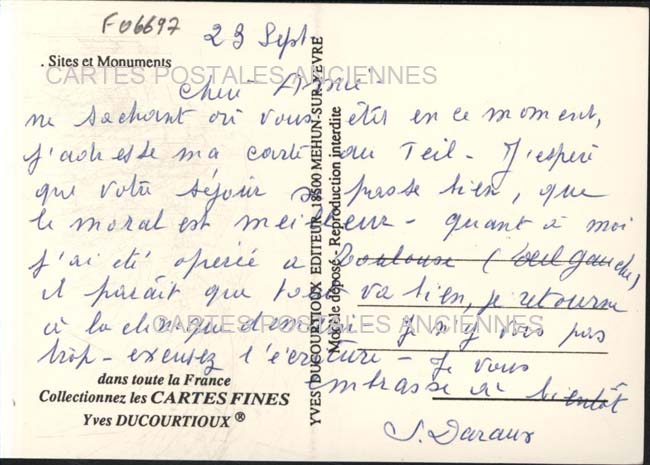 F06697
23 Sept
. Sites et Monuments
CARTES POSTALES ANCIENNES
Cher
ne sachant où vous êtes en ce moment,
j'adresse ma carte au Teil - J'espère
que votre séjour se passe bien, que
le moral est meilleur - quant à moi
j'ai été opérée à Toulouse (oeil gauche)
il paraît que tout va bien, je retourne
à la clinique demain J'n'y vois pas
CARTES POSTALES ANCIENNES
trop - excusez l'écriture - Je vous
embrasse à bientôt
S. Daraux
dans toute la France
Collectionnez les CARTES FINES
Yves DUCOURTIOUX ®
YVES DUCOURTIOUX EDITEUR 18500 MEHUN-SUR-YEVRE
Modèle déposé - Reproduction interdite